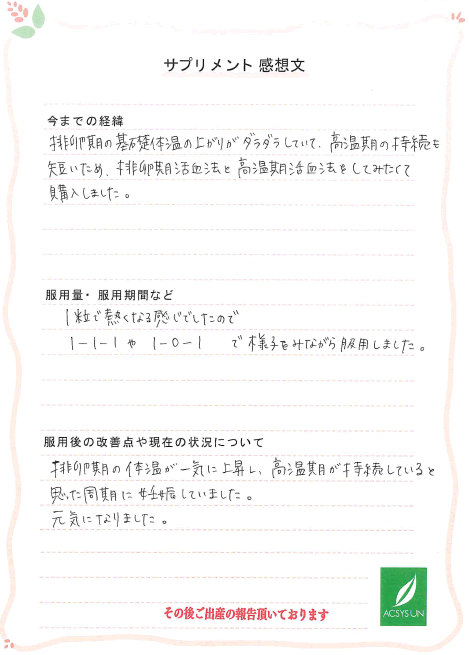 サプリメント 感想文
今までの経緯
排卵期の基礎体温の上がりがダラダラしていて、高温期の持続も
短いため、排卵期活血法と高温期活血法をしてみたくて
購入しました。
服用量・服用期間など
1粒で熱くなる感じでしたので
1-1-1や 1-0-1 で様子をみながら服用しました。
服用後の改善点や現在の状況について
排卵期の体温が一気に上昇し、高温期が持続していると
思った周期に妊娠していました。
元気になりました。
その後ご出産の報告頂いております
ACSYSUN